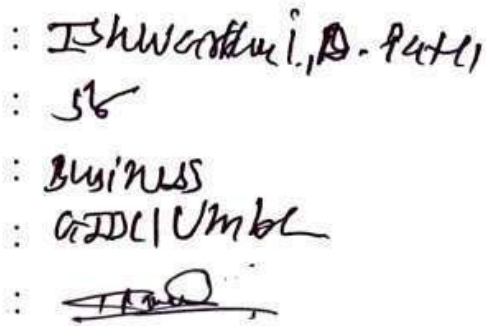 : Ishwarbhai, D. Patel
: 56
: Business
: GIDC, Umbe
: